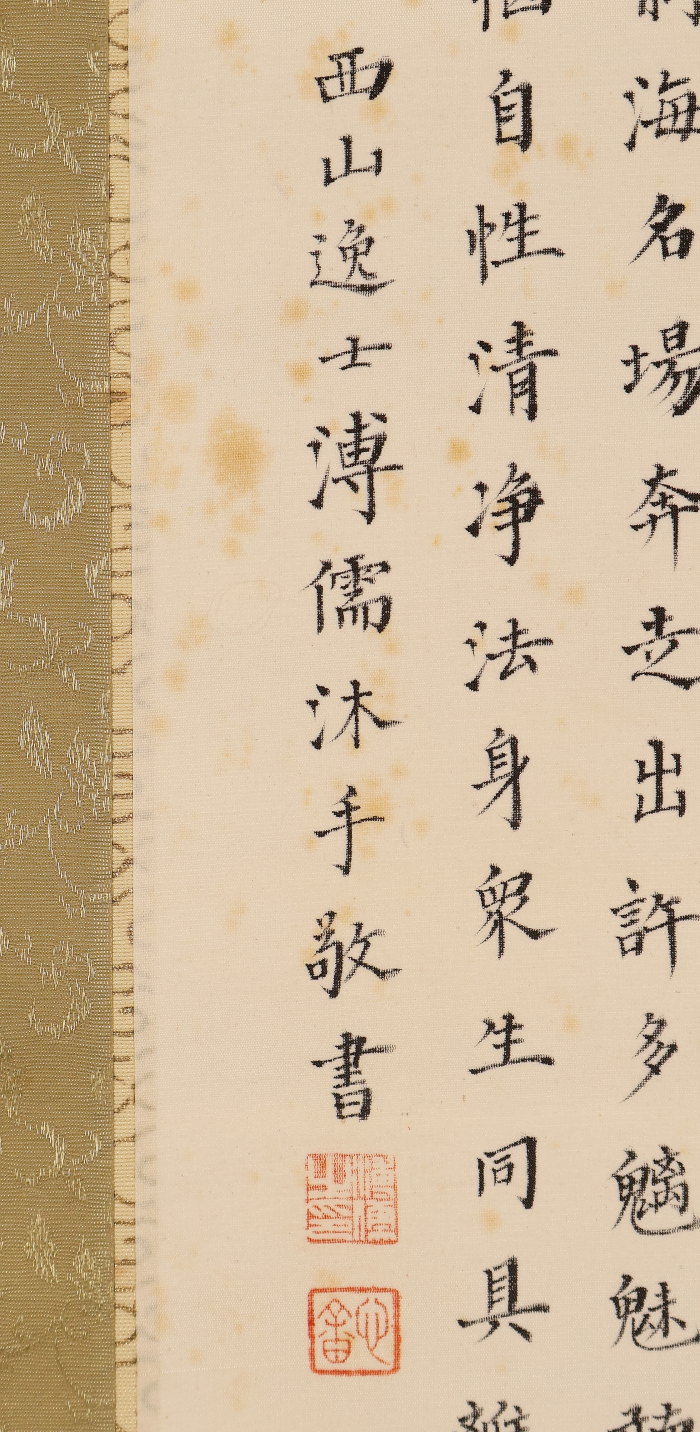 海名場奔走出許多魑魅
自性清净法身衆生同具
西山逸士溥儒沐手敬書
心畬